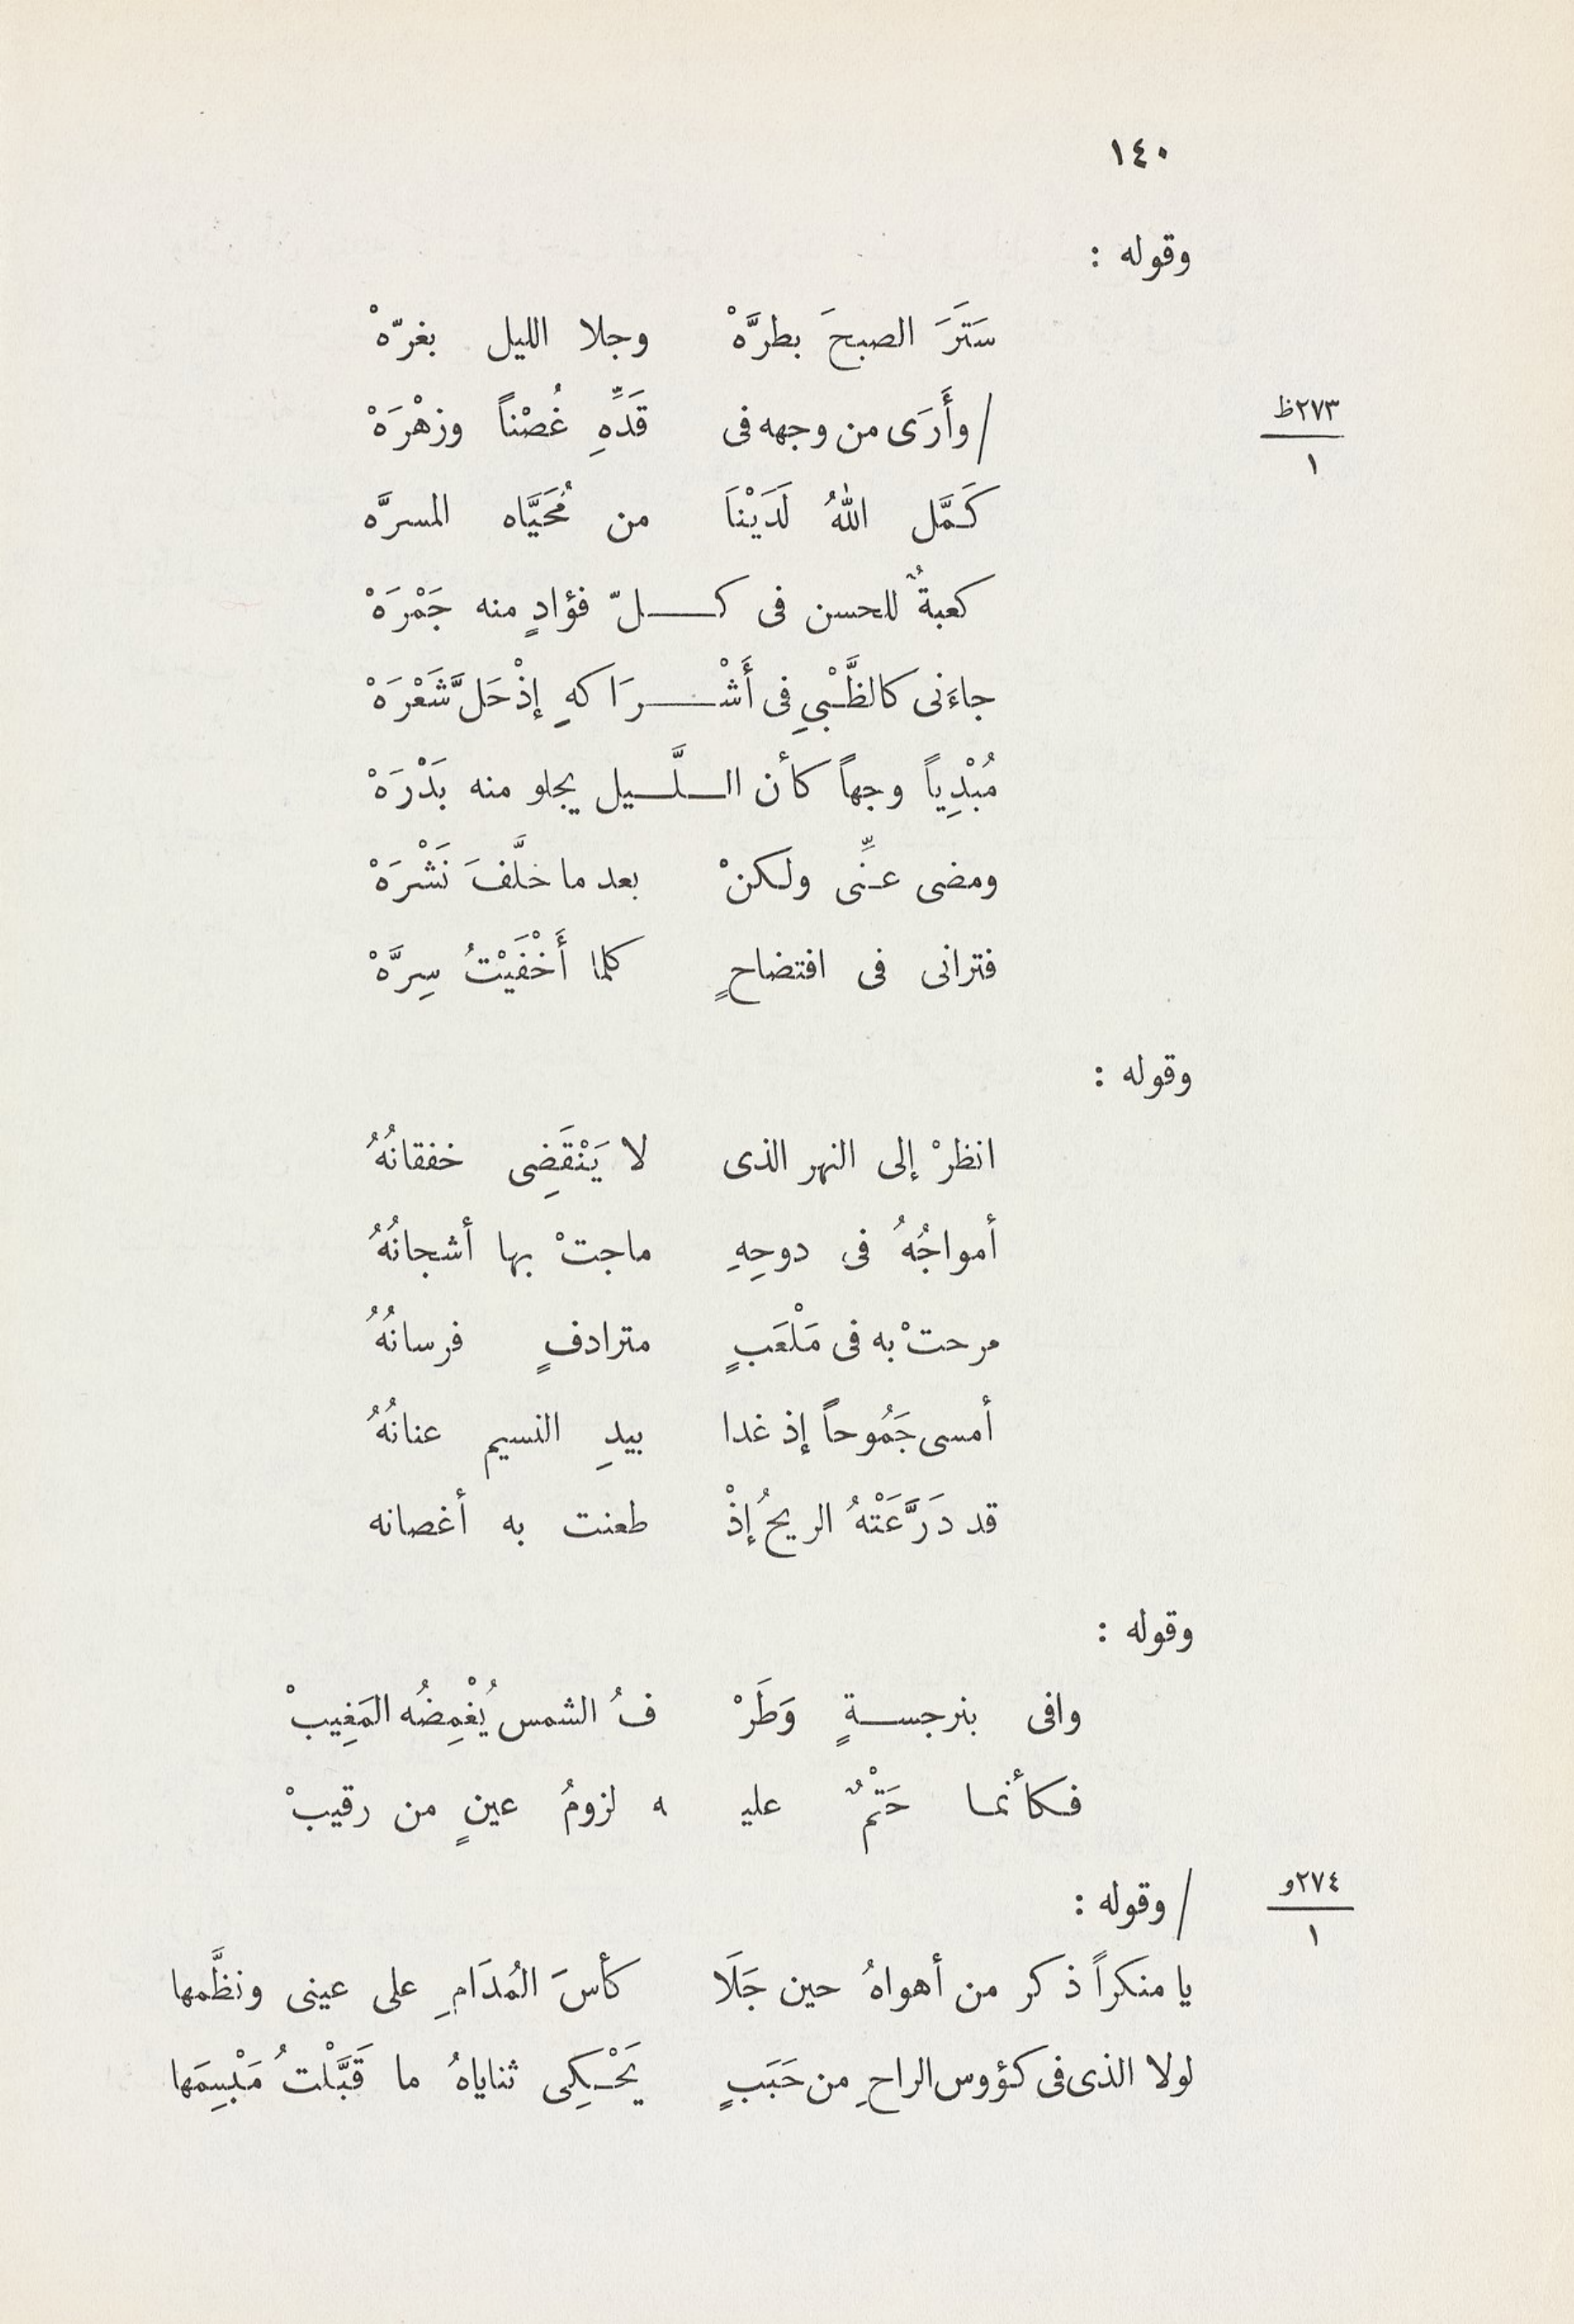 ١٤٠
وقوله :
سَتَرَ الصبحَ بطرَّهْ وجلا الليل بغرّهْ
/ وأَرَى من وجهه فى قَدِّهِ غُصْناً وزهْرَهْ
٢٧٣ظ
١
كَمَّل اللهُ لَدَيْنَا من مُحَيَّاه المسرَّه
كعبةٌ للحسن فى كـــلّ فؤادٍ منه جَمْرَهْ
جاءَنى كالظَّبْيِ فى أَشْـــرَاكهِ إذْ حَلَّ شَعْرَهْ
مُبْدِياً وجهاً كأن الـلَّـيل يجلو منه بَدْرَهْ
ومضى عنِّى ولكنْ بعد ما خلَّفَ نَشْرَهْ
فترانى فى افتضاحٍ كلما أَخْفَيْتُ سِرَّهْ
وقوله :
انظرْ إلى النهر الذى لا يَنْقَضِى خفقانُهُ
أمواجُهُ فى دوحِهِ ماجتْ بها أشجانُهُ
مرحتْ به فى مَلْعَبٍ مترادفٍ فرسانُهُ
أمسى جَمُوحاً إذ غدا بيدِ النسيم عنانُهُ
قد دَرَّعَتْهُ الريحُ إذْ طعنت به أغصانه
وقوله :
وافى بنرجســةٍ وَطَرْ فُ الشمس يُغْمِضُه المَغِيبْ
فكأنما حَتْمٌ عليـ ـه لزومُ عينٍ من رقيبْ
/ وقوله :
٢٧٤و
١
يا منكراً ذكر من أهواهُ حين جَلَا كأسَ المُدَامِ على عينى ونظَّمها
لولا الذى فى كؤوس الراحِ من حَبَبٍ يَحْكِى ثناياهُ ما قَبَّلْتُ مَبْسِمَها